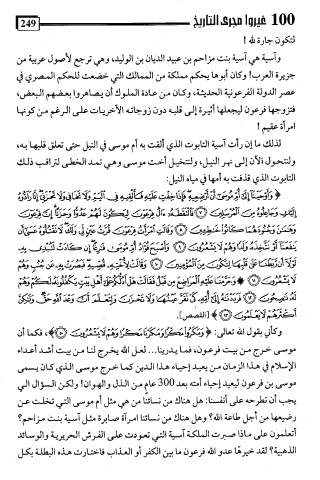 100 غيروا مجرى التاريخ
249
لتكون جارة لله !
وآسية هي آسية بنت مزاحم بن عبيد الديان بن الوليد، وهي ترجع لأصول عربية من
جزيرة العرب! وكان أبوها يحكم مملكة من الممالك التي خضعت للحكم المصري في
عصر الدولة الفرعونية الحديثة، وكان من عادة الملوك أن يصاهروا بعضهم البعض،
فتزوجها فرعون ليجعلها أثيرة إلى قلبه دون زوجاته الأخريات على الرغم من كونها
امرأة عقيم !
لذلك ما إن رأت آسية التابوت الذي ألقت به أم موسى في النيل حتى تعلق قلبها به،
ولنتحول الآن إلى نهر النيل، ولنتخيل أخت موسى وهي تمد الخطى لتراقب ذلك
التابوت الذي قذفت به أمها في مياه النيل:
﴿ وَأَوْحَيْنَا إِلَى أُمِّ مُوسَى أَنْ أَرْضِعِيهِ فَإِذَا خِفْتِ عَلَيْهِ فَأَلْقِيهِ فِي الْيَمِّ وَلَا تَخَافِي وَلَا تَحْزَنِي إِنَّا رَادُّوهُ
إِلَيْكِ وَجَاعِلُوهُ مِنَ الْمُرْسَلِينَ ۝ فَالْتَقَطَهُ آلُ فِرْعَوْنَ لِيَكُونَ لَهُمْ عَدُوًّا وَحَزَنًا إِنَّ فِرْعَوْنَ
وَهَامَانَ وَجُنُودَهُمَا كَانُوا خَاطِئِينَ ۝ وَقَالَتِ امْرَأَتُ فِرْعَوْنَ قُرَّتُ عَيْنٍ لِي وَلَكَ لَا تَقْتُلُوهُ عَسَى أَنْ
يَنْفَعَنَا أَوْ نَتَّخِذَهُ وَلَدًا وَهُمْ لَا يَشْعُرُونَ ۝ وَأَصْبَحَ فُؤَادُ أُمِّ مُوسَى فَارِغًا إِنْ كَادَتْ لَتُبْدِي بِهِ
لَوْلَا أَنْ رَبَطْنَا عَلَى قَلْبِهَا لِتَكُونَ مِنَ الْمُؤْمِنِينَ ۝ وَقَالَتْ لِأُخْتِهِ قُصِّيهِ فَبَصُرَتْ بِهِ عَنْ جُنُبٍ وَهُمْ
لَا يَشْعُرُونَ ۝ وَحَرَّمْنَا عَلَيْهِ الْمَرَاضِعَ مِنْ قَبْلُ فَقَالَتْ هَلْ أَدُلُّكُمْ عَلَى أَهْلِ بَيْتٍ يَكْفُلُونَهُ لَكُمْ وَهُمْ
لَهُ نَاصِحُونَ ۝ فَرَدَدْنَاهُ إِلَى أُمِّهِ كَيْ تَقَرَّ عَيْنُهَا وَلَا تَحْزَنَ وَلِتَعْلَمَ أَنَّ وَعْدَ اللَّهِ حَقٌّ وَلَكِنَّ
أَكْثَرَهُمْ لَا يَعْلَمُونَ ۝ ﴾ [القصص].
وكأني بقول الله تعالى: ﴿ وَمَكَرُوا مَكْرًا وَمَكَرْنَا مَكْرًا وَهُمْ لَا يَشْعُرُونَ ۝ ﴾، فكما أن
موسى خرج من بيت فرعون، فما يدرينا... لعل الله يخرج لنا من بيت أشد أعداء
الإسلام في هذا الزمان من يعيد إحياء هذا الدين كما خرج موسى الذي كان يسمى
موسى بن فرعون ليعيد إحياء أمته بعد 300 عام من الذل والهوان! ولكن السؤال الي
يجب أن نطرحه على أنفسنا: هل هناك من نسائنا من هي مثل أم موسى التي تخلت عن
رضيعها من أجل طاعة الله؟ وهل هناك من نسائنا امرأة صابرة مثل آسية بنت مزاحم؟
أتعلمون على ماذا صبرت الملكة آسية التي تعودت على الفرش الحريرية والوسائد
الذهبية؟ لقد خيرها عدو الله فرعون ما بين الكفر أو العذاب فاختارت هذه البطلة بكل